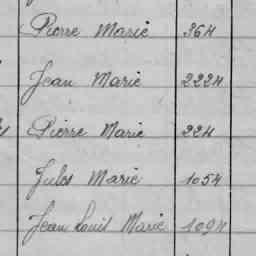 Pierre Marie 364
Jean Marie 2224
Pierre Marie 224
Jules Marie 1054
Jean Louis Marie 1094